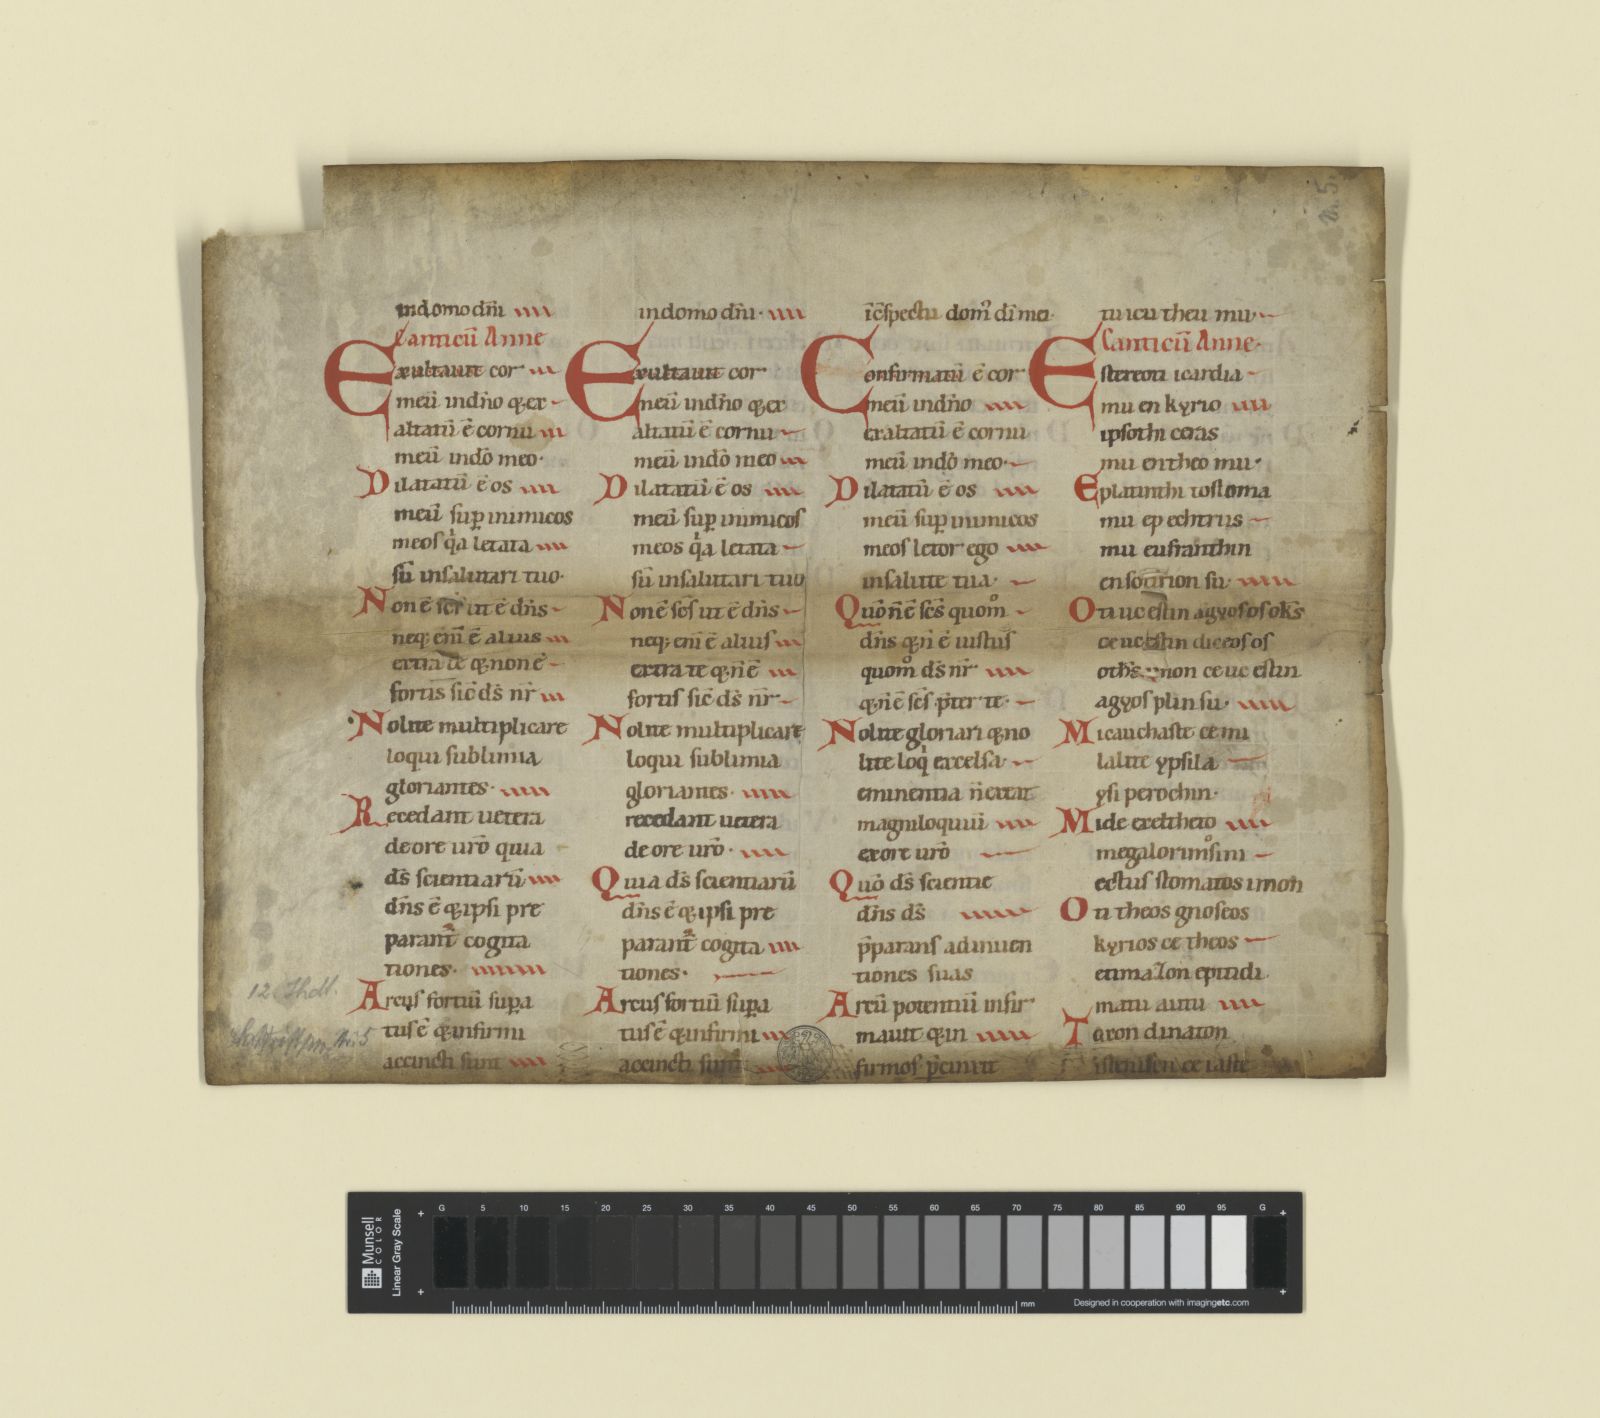 indomo dñi
Canticũ Anne
Exultauit cor
meũ indño q; ex
altatũ ẽ cornu
meũ indõ meo·
Dilatatũ ẽ os
meũ sup inimicos
meos q̇a letata
sũ insalutari tuo·
Non ẽ scs̃ ut ẽ dñs
neq; eni ẽ alius
extra te q; non ẽ
fortis sic̃ ds̃ nr̃
Nolite multiplicare
loqui sublimia
gloriantes·
Recedant uetera
de ore urõ quia
ds̃ scientiarũ
dñs ẽ q; ipsi pre
parant̃ cogita
tiones·
Arcus fortiũ supa
tus ẽ q; infirmi
accincti sunt
indomo dñi·
Exultauit cor
meũ indño q; ex
altatũ ẽ cornu
meũ indõ meo
Dilatatũ ẽ os
meũ sup inimicos
meos q̇a letata
sũ insalutari tuo
Non ẽ scs̃ ut ẽ dñs
neq; eni ẽ alius
extra te q; ñ ẽ
fortis sic̃ ds̃ nr̃
Nolite multiplicare
loqui sublimia
gloriantes·
recedant uetera
de ore urõ·
Quia ds̃ scientiarũ
dñs ẽ q; ipsi pre
parant̃ cogita
tiones·
Arcus fortiũ supa
tus ẽ q; infirmi
accincti sunt
ĩ c̃spectu domĩ dĩ mei
Confirmatũ ẽ cor
meũ indño
exaltatũ ẽ cornu
meũ indõ meo·
Dilatatũ ẽ os
meũ sup inimicos
meos letor ego
insalute tua·
Quõ ñ ẽ scs̃ quom̊
dñs q; ñ ẽ iustus
quom̊ ds̃ nr̃
q; ñ ẽ scs̃ p̃ter te·
Nolite gloriari q; no
lite loq̇ excelsa
eminentia ñ exeat
magniloquiũ
ex ore urõ
Quõ ds̃ scientie
dñs ds̃
p̃parans adinuen
tiones suas
Arcũ potentiũ infir
mauit q; in
firmos p̃cinxit
tu icu theu mu
Canticũ Anne·
Estereoti icardia
mu en kyrio
ipsothi ceras
mu en theo mu·
Eplatinthi tostoma
mu ep echtrus
mu eufranthin
ensotirion su·
Oti uc estin agyos os oks̃
ce uc estin diceos os
oths̃ mon ce uc estin
agyos plin su·
Mi cauchaste ce mi
lalite ypsila
ysi perochin·
Mide exeltheto
megalorimsini
ectus stomatos imon
Oti theos gnoseos
kyrios ce theos
etimazon epitidi
mata autu
Toxon dinaton
istenisen ce iaste
12. Jhdt.
№ 5